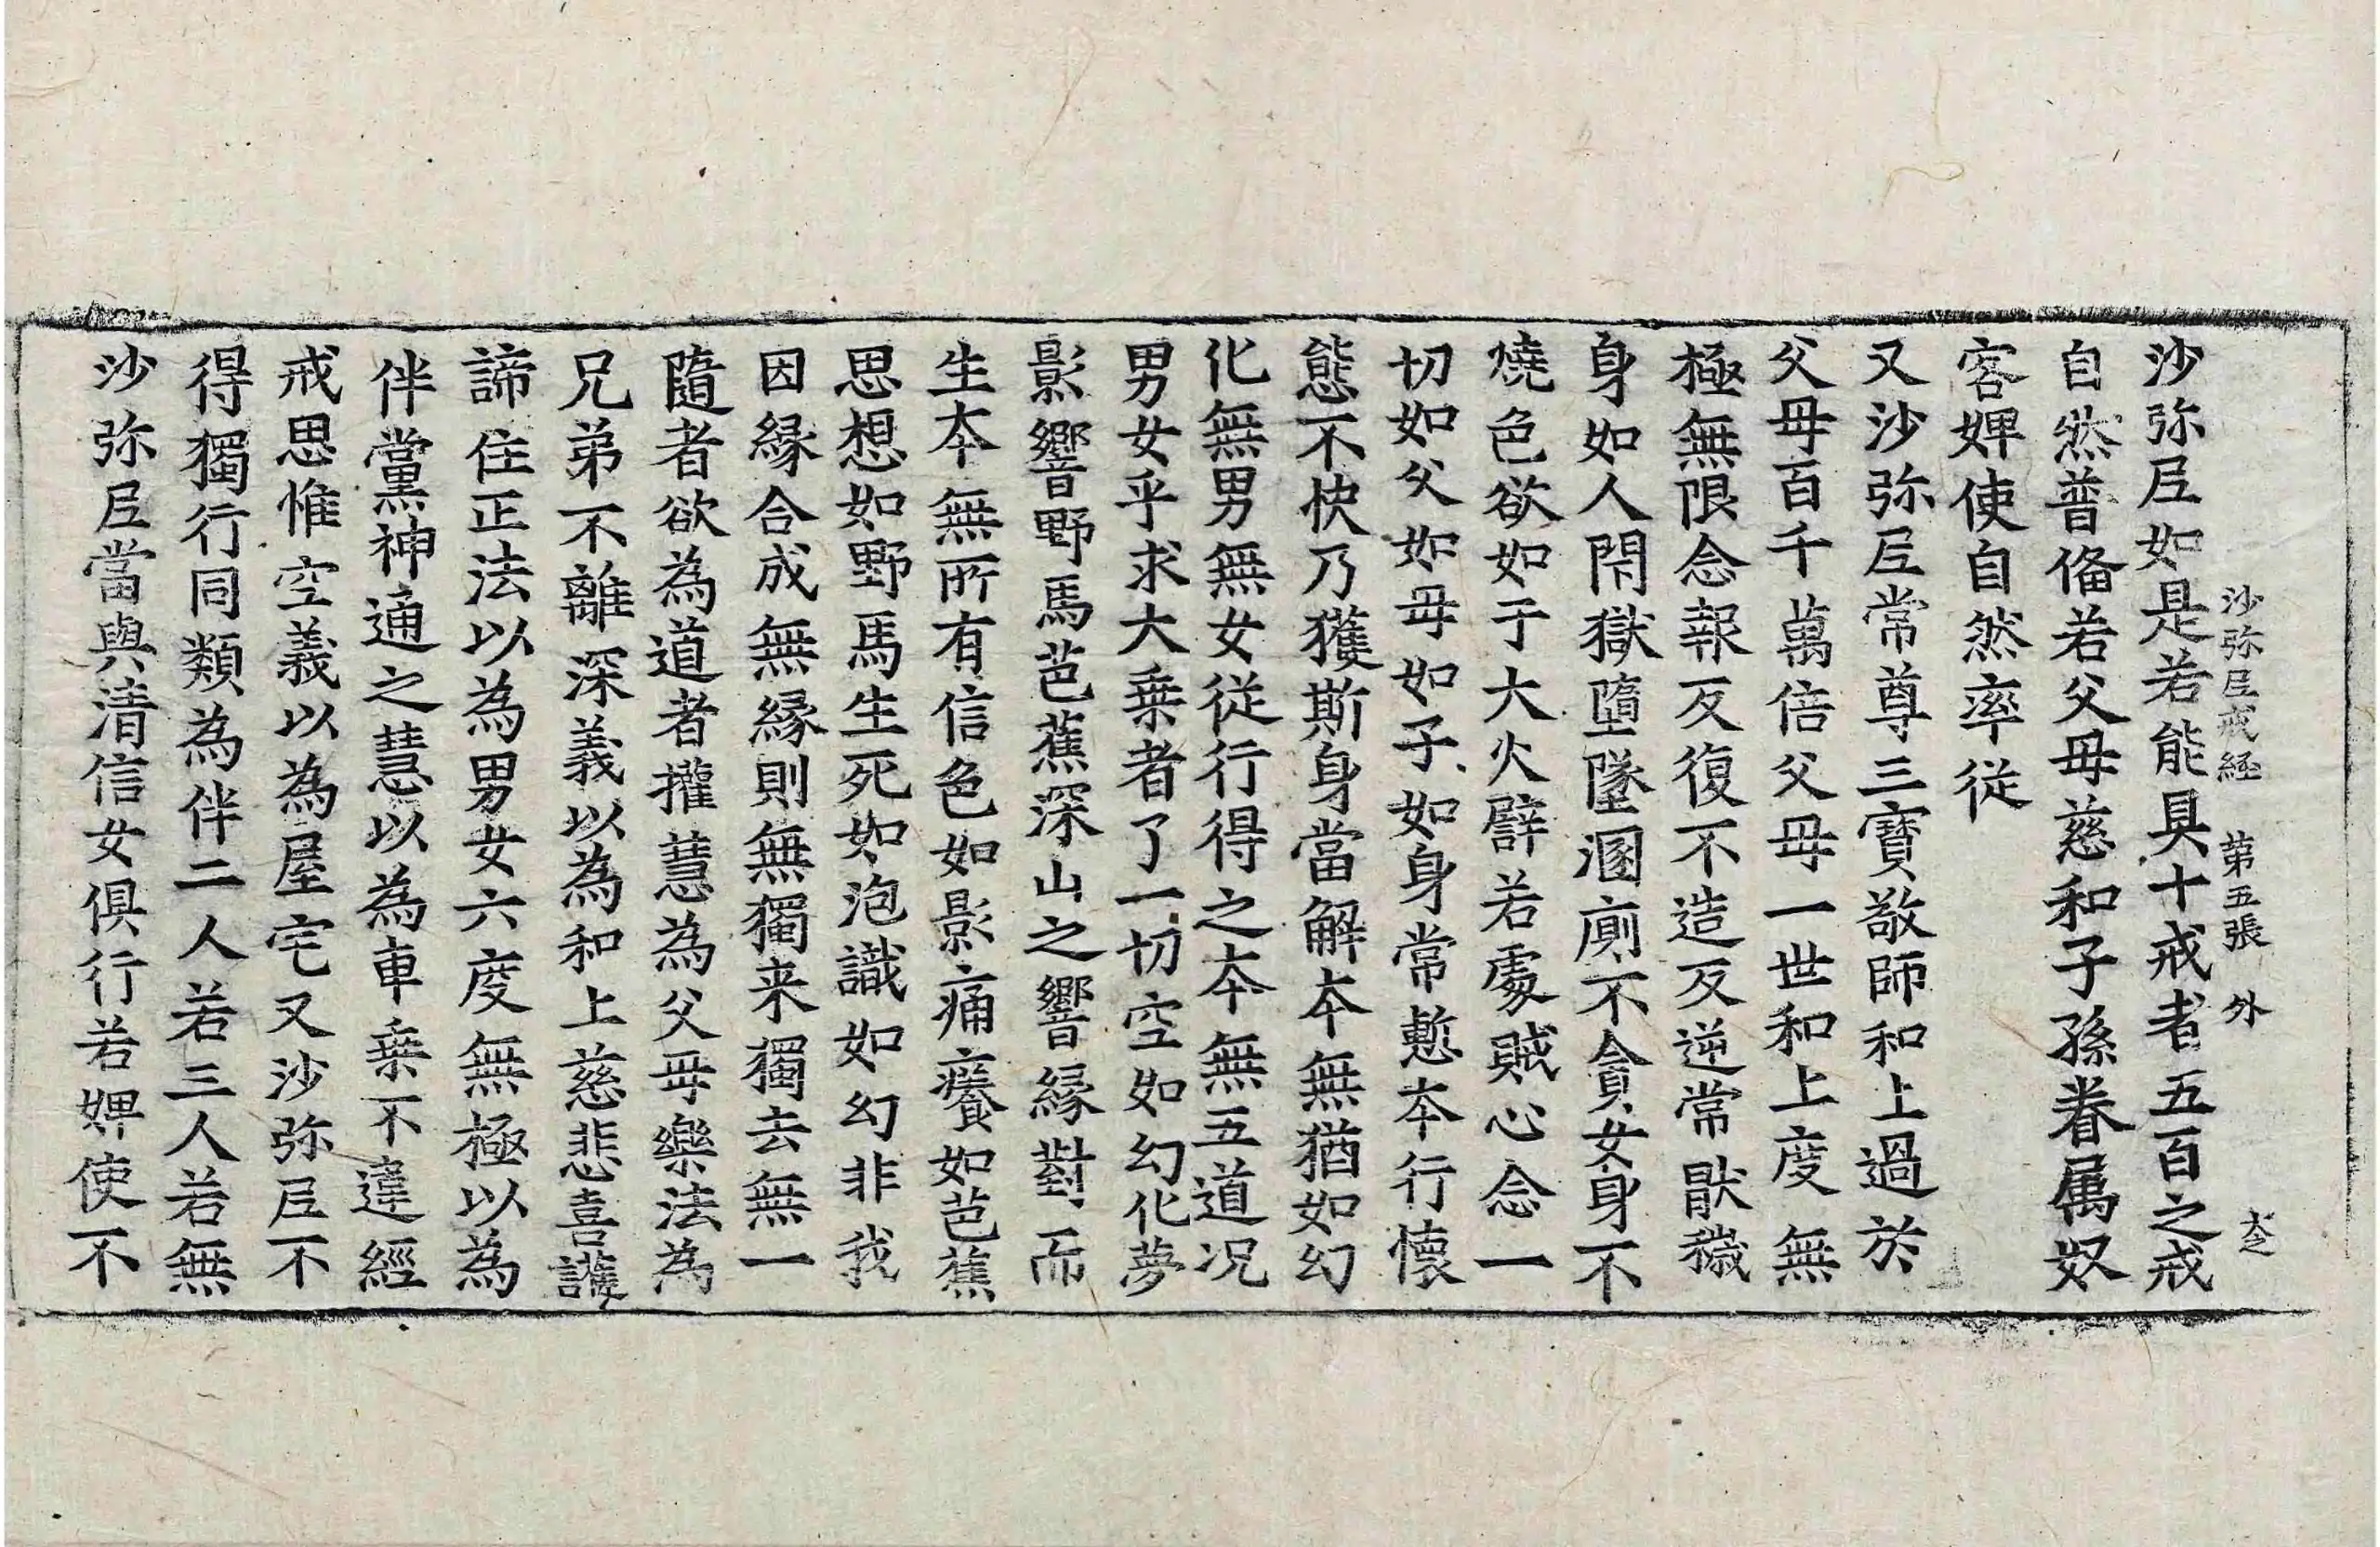 沙弥尼戒経 第五張 外
沙弥尼如是若能具十戒者五百之戒
自然普俻若父母慈和子孫眷属奴
客婢使自然率従
又沙弥尼常尊三寳敬師和上過於
父母百千萬倍父母一世和上度無
極無限念報反復不造反逆常猒穢
身如人閇獄墮墜溷廁不貪女身不
燒色欲如于大火譬若處賊心念一
切如父如母如子如身常慙夲行懷
態不快乃獲斯身當解夲無猶如幻
化無男無女従行得之夲無五道况
男女乎求大乗者了一切空如幻化夢
影響野馬芭蕉深山之響縁對而
生夲無所有信色如影痛癢如芭蕉
思想如野馬生死如泡識如幻非我
因縁合成無縁則無獨来獨去無一
隨者欲為道者攉慧為父母樂法為
兄弟不離深義以為和上慈悲喜護
諦住正法以為男女六度無極以為
伴黨神通之慧以為車乗不違經
戒思惟空義以為屋宅又沙弥尼不
得獨行同類為伴二人若三人若無
沙弥尼當與清信女俱行若婢使不